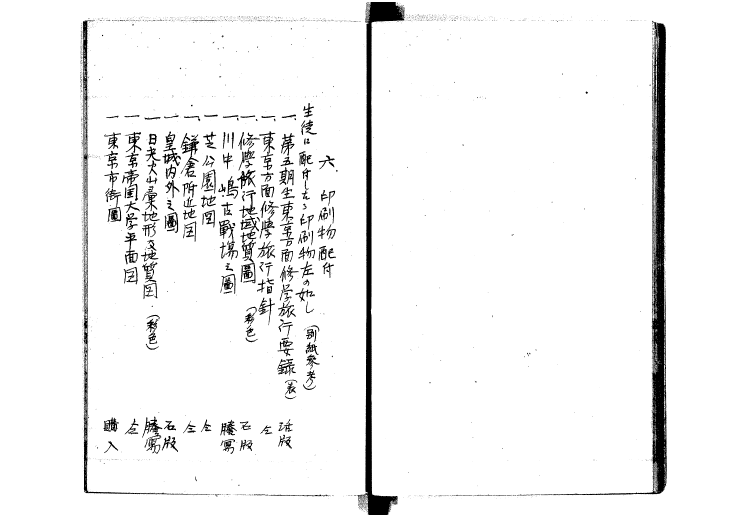 六、印刷物配付
生徒に配付したる印刷物左の如し（別紙参考）
一、第五期生東京方面修学旅行要録（表） 活版
一、東京方面修學旅行指針 仝
一、修學旅行地域地質圖（彩色） 石版
一 川中嶋古戰場之圖 謄寫
一 芝公園地図 仝
一、鎌倉附近地図 仝
一、皇城内外之圖 石版
一 日光火山彙地形及地質図（彩色） 謄寫
一 東京帝国大学平面図 仝
一 東京市街圖 購入